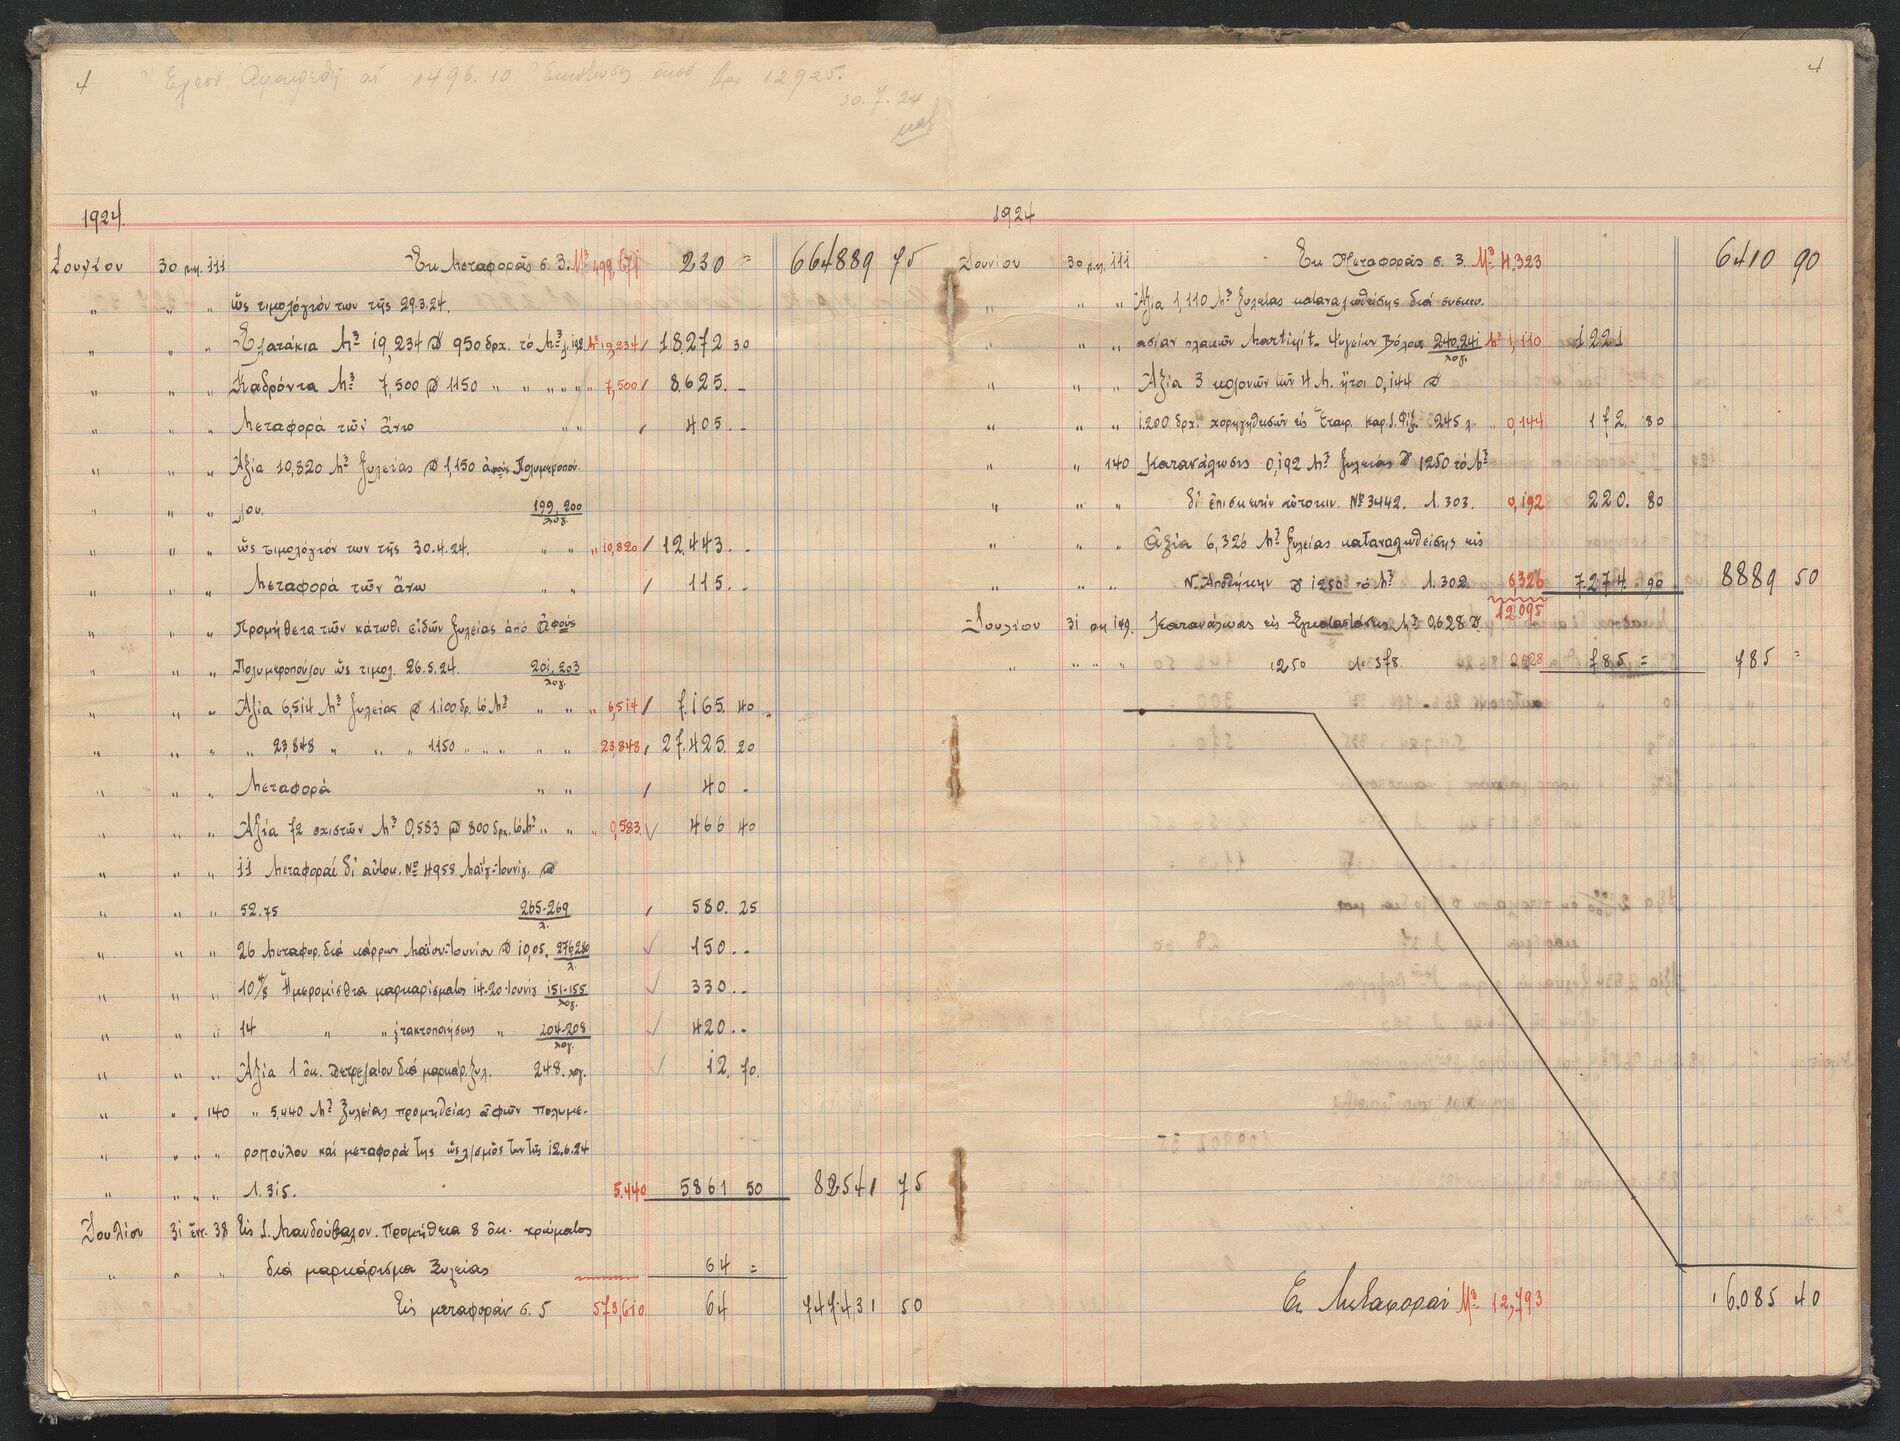 4
1496.10 Δρχ 12.925.
30.7.24
1924.
Ἰουνίου 30 ημ. 111 Ἐκ Μεταφορᾶς σ. 3. Μ3 498,671 230 = 664889 75
" " " ὡς τιμολόγιόν των τῆς 29.3.24.
" " " Ἐλατάκια Μ3 19,234 @ 950 δρχ. τό Μ3 λ.192 Μ3 19,234 / 18.272 30
" " " Καδρόνια Μ3 7,500 @ 1150 " " " " " " 7,500 / 8.625. -
" " " Μεταφορά τῶν ἄνω " " / 405. -
" " " Ἀξία 10,820 Μ3 ξυλείας @ 1,150 ἀφούς Πολυμεροπού-
" " " λου. 199, 200 λογ.
" " " ὡς τιμολόγιόν των τῆς 30.4.24. " " " 10,820 / 12.443. -
" " " Μεταφορά τῶν ἄνω " " / 115. -
" " " Προμήθεια τῶν κάτωθι εἰδῶν ξυλείας ἀπό Ἀφούς
" " " Πολυμεροπούλου ὡς τιμολ. 26.5.24. 201, 203 λογ.
" " " Ἀξία 6,514 Μ3 ξυλείας @ 1.100 δρ. τό Μ3 " " " 6,514 / 7.165. 40
" " " " 23,848 " " " 1150 " " " " " " 23,848 / 27.425. 20
" " " Μεταφορά " " / 40 -
" " " Ἀξία 72 σχιστῶν Μ3 0,583 @ 800 δρχ. τό Μ3 " " " 0,583 √ 466 40
" " " 11 Μεταφοραί δι' αὐτοκ. Νο 4958 Μαΐου-Ἰουνίου @
" " " 52.75 265-269 λ. / 580. 25
" " " 26 Μεταφορ. διά κάρρων Μαΐου-Ἰουνίου @ 10,05. 276,280 λ. √ 150. -
" " " 10 4/8 Ἡμερομίσθια μαρκαρίσματος 14-20 Ἰουνίου 151-155 λογ. √ 330. -
" " " 14 " " τακτοποιήσεως " 204-208 λογ. √ 420. -
" " " Ἀξία 1 ὀκ. πετρελαίου διά μαρκάρ. ξυλ. 248. λογ. √ 12. 70.
" " 140 " 5.440 Μ3 ξυλείας προμηθείας ἀφῶν Πολυμε-
" " " ροπούλου καί μεταφορά της ὡς λ/σμός των τῆς 12.6.24
" " " λ. 315. 5.440 5861 50 82541 75
Ἰουλίου 31 ἐντ. 38 Εἰς Ι. Μανδούβαλον. Προμήθεια 8 ὀκ. χρώματος
" " " διά μαρκάρισμα ξυλείας 64 =
Εἰς μεταφοράν σ. 5 573,610 64 747.431 50
4
1924
Ἰουνίου 30 ημ. 111 Ἐκ Μεταφορᾶς σ. 3. Μ3 4.323 6410 90
" " " Ἀξία 1,110 Μ3 ξυλείας καταναλωθείσης διά συσκευ-
" " " ασίαν πλακῶν Ψυγείων Βόλου 240,241 λογ. Μ3 1,110 1221
" " " Ἀξία 3 κολονῶν τῶν 4 Μ. ἤτοι 0,144 @
" " " 1.200 δρχ. χορηγηθεισῶν εἰς Ἑταιρ. 245 λ. " 0,144 172. 80
" " 140 Κατανάλωσις 0,192 Μ3 ξυλείας @ 1250 τό Μ3
" " " δι' ἐπισκευήν αὐτοκιν. Νο 3442. λ. 303. 0,192 220. 80
" " " Ἀξία 6,326 Μ3 ξυλείας καταναλωθείσης εἰς
" " " Ν. Ἀποθήκην @ 1250 τό Μ3 λ. 302. 6,326 7.274 90 8889 50
12.095
Ἰουλίου 31 ημ 149. Κατανάλωσις εἰς Ἐγκαταστάσεις Μ3 0,628 @
" " " " 1250 λ. 378. 0,628 785 = 785 =
Εἰς Μεταφοράν Μ3 12,793 16.085 40